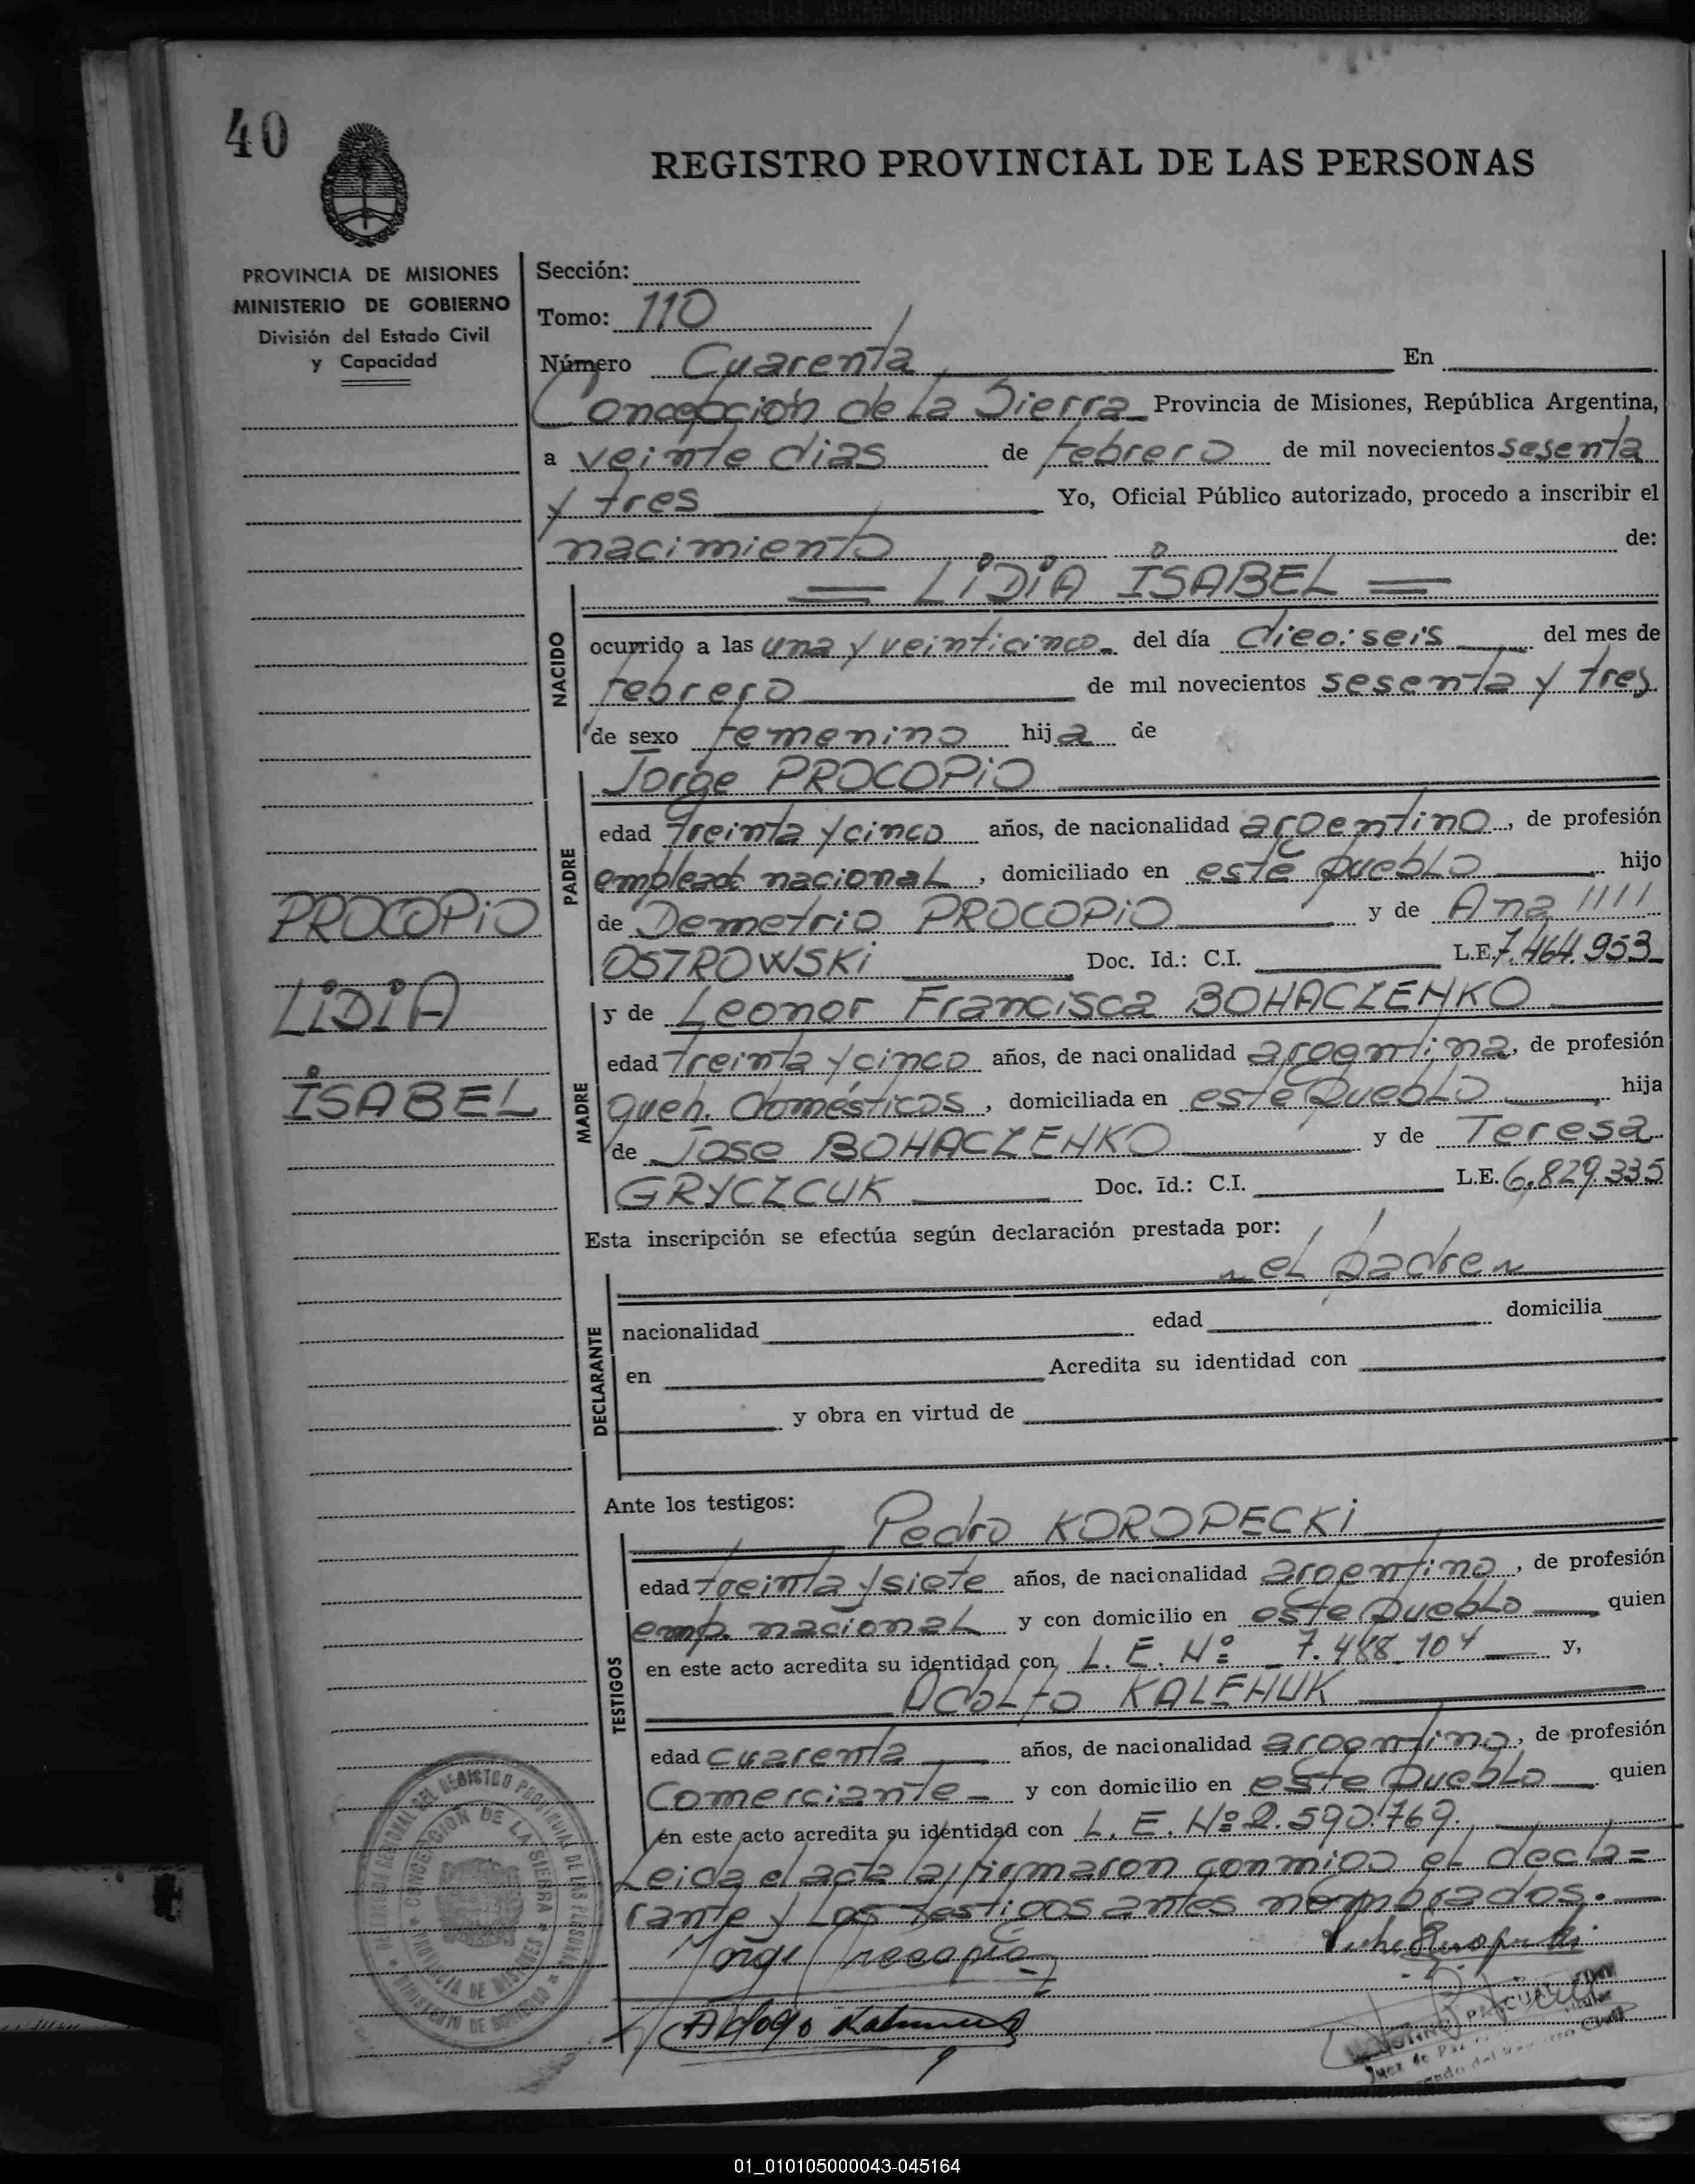 40
REGISTRO PROVINCIAL DE LAS PERSONAS
PROVINCIA DE MISIONES
MINISTERIO DE GOBIERNO
División del Estado Civil
y Capacidad
Sección:
Tomo: 110
Número Cuarenta En
Concepción de la Sierra Provincia de Misiones, República Argentina,
a veinte dias de febrero de mil novecientos sesenta
y tres Yo, Oficial Público autorizado, procedo a inscribir el
nacimiento de:
= LIDIA ISABEL =
NACIDO
ocurrido a las una y veinticinco del día diec: seis del mes de
febrero de mil novecientos sesenta y tres
de sexo femenino hija de
Jorge PROCOPIO
PADRE
edad treinta y cinco años, de nacionalidad argentino, de profesión
empleado nacional, domiciliado en este pueblo hijo
de Demetrio PROCOPIO y de Ana ////
OSTROWSKI Doc. Id.: C.I. L.E. 7.464.953
PROCOPIO
LIDIA
ISABEL
y de Leonor Francisca BOHACZENKO
MADRE
edad treinta y cinco años, de nacionalidad argentina, de profesión
queh. domésticos, domiciliada en este Pueblo hija
de Jose BOHACZENKO y de Teresa
GRYCZCUK Doc. Id.: C.I. L.E. 6.829.335
Esta inscripción se efectúa según declaración prestada por:
el padre
DECLARANTE
nacionalidad edad domicilia
en Acredita su identidad con
y obra en virtud de
Ante los testigos:
Pedro KOROPECKI
TESTIGOS
edad treinta y siete años, de nacionalidad argentino, de profesión
emp. nacional y con domicilio en este Pueblo quien
en este acto acredita su identidad con L. E. Nº 7.488.104 y,
Adolfo KALENUK
edad cuarenta años, de nacionalidad argentino, de profesión
Comerciante y con domicilio en este Pueblo quien
en este acto acredita su identidad con L. E. Nº 2.590.769.
Leida el acta la firmaron conmigo el decla=
rante y los testigos antes nombrados.
Jorge Procopio
Adolfo Kalenuk
CONCEPCION DE LA SIERRA
PROVINCIA DE MISIONES
DEL REGISTRO PROVINCIAL DE LAS PERSONAS
MINISTERIO DE GOBIERNO
Juez de Paz
01_010105000043-045164